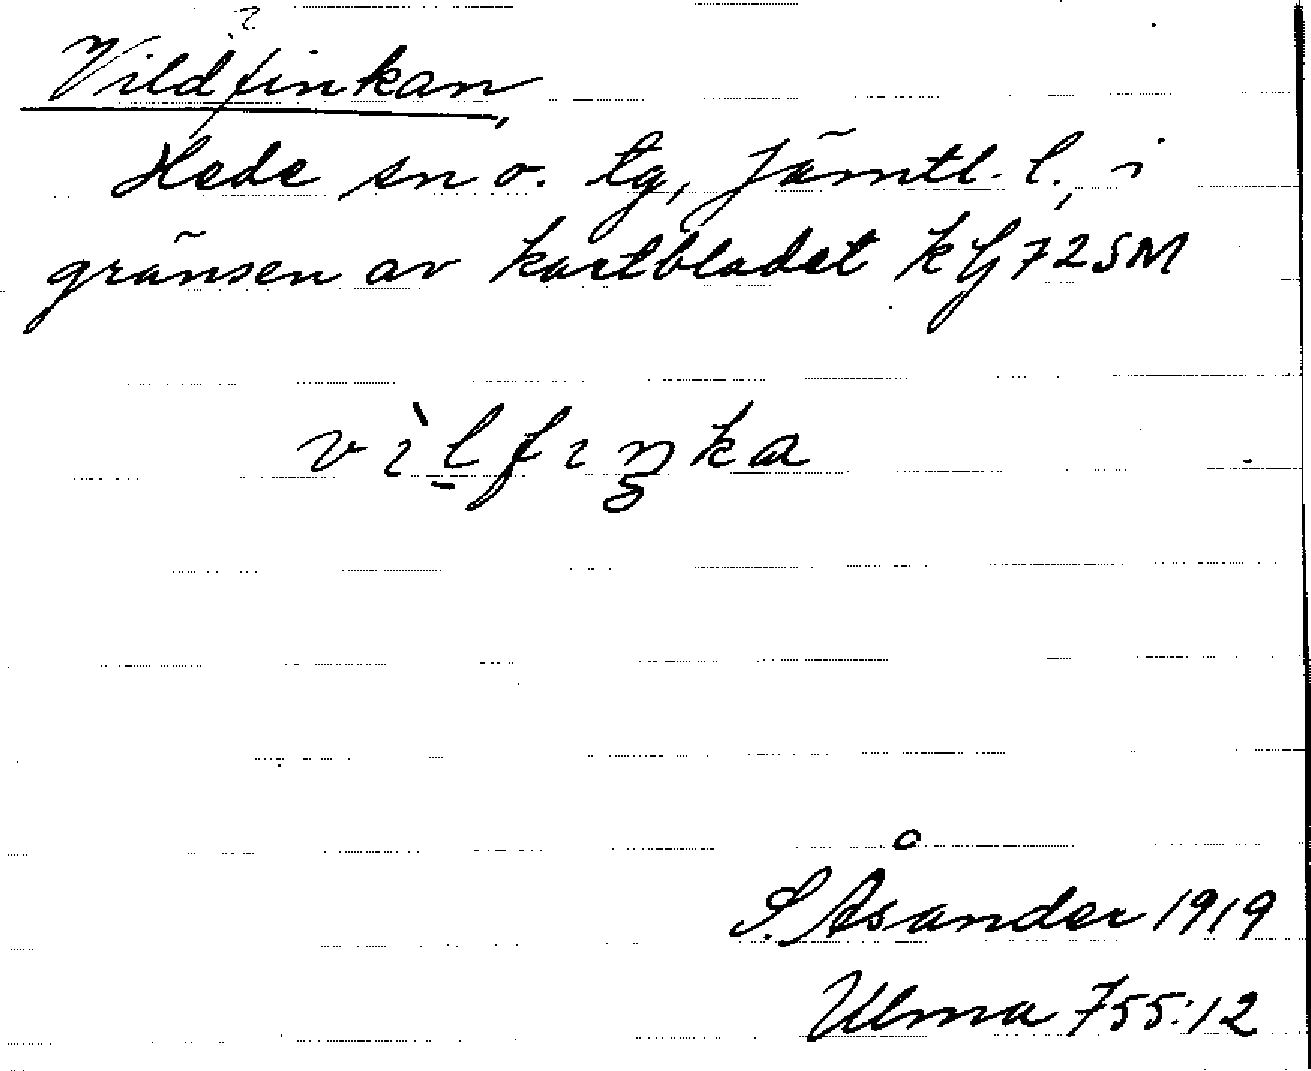 ?
Vildfinkan,
Hede sn o. tg, Jämtl. l., i
gränsen av kartbladet kg 72 SM
vìl̠fıŋka
S. Åsander 1919
Ulma 755:12